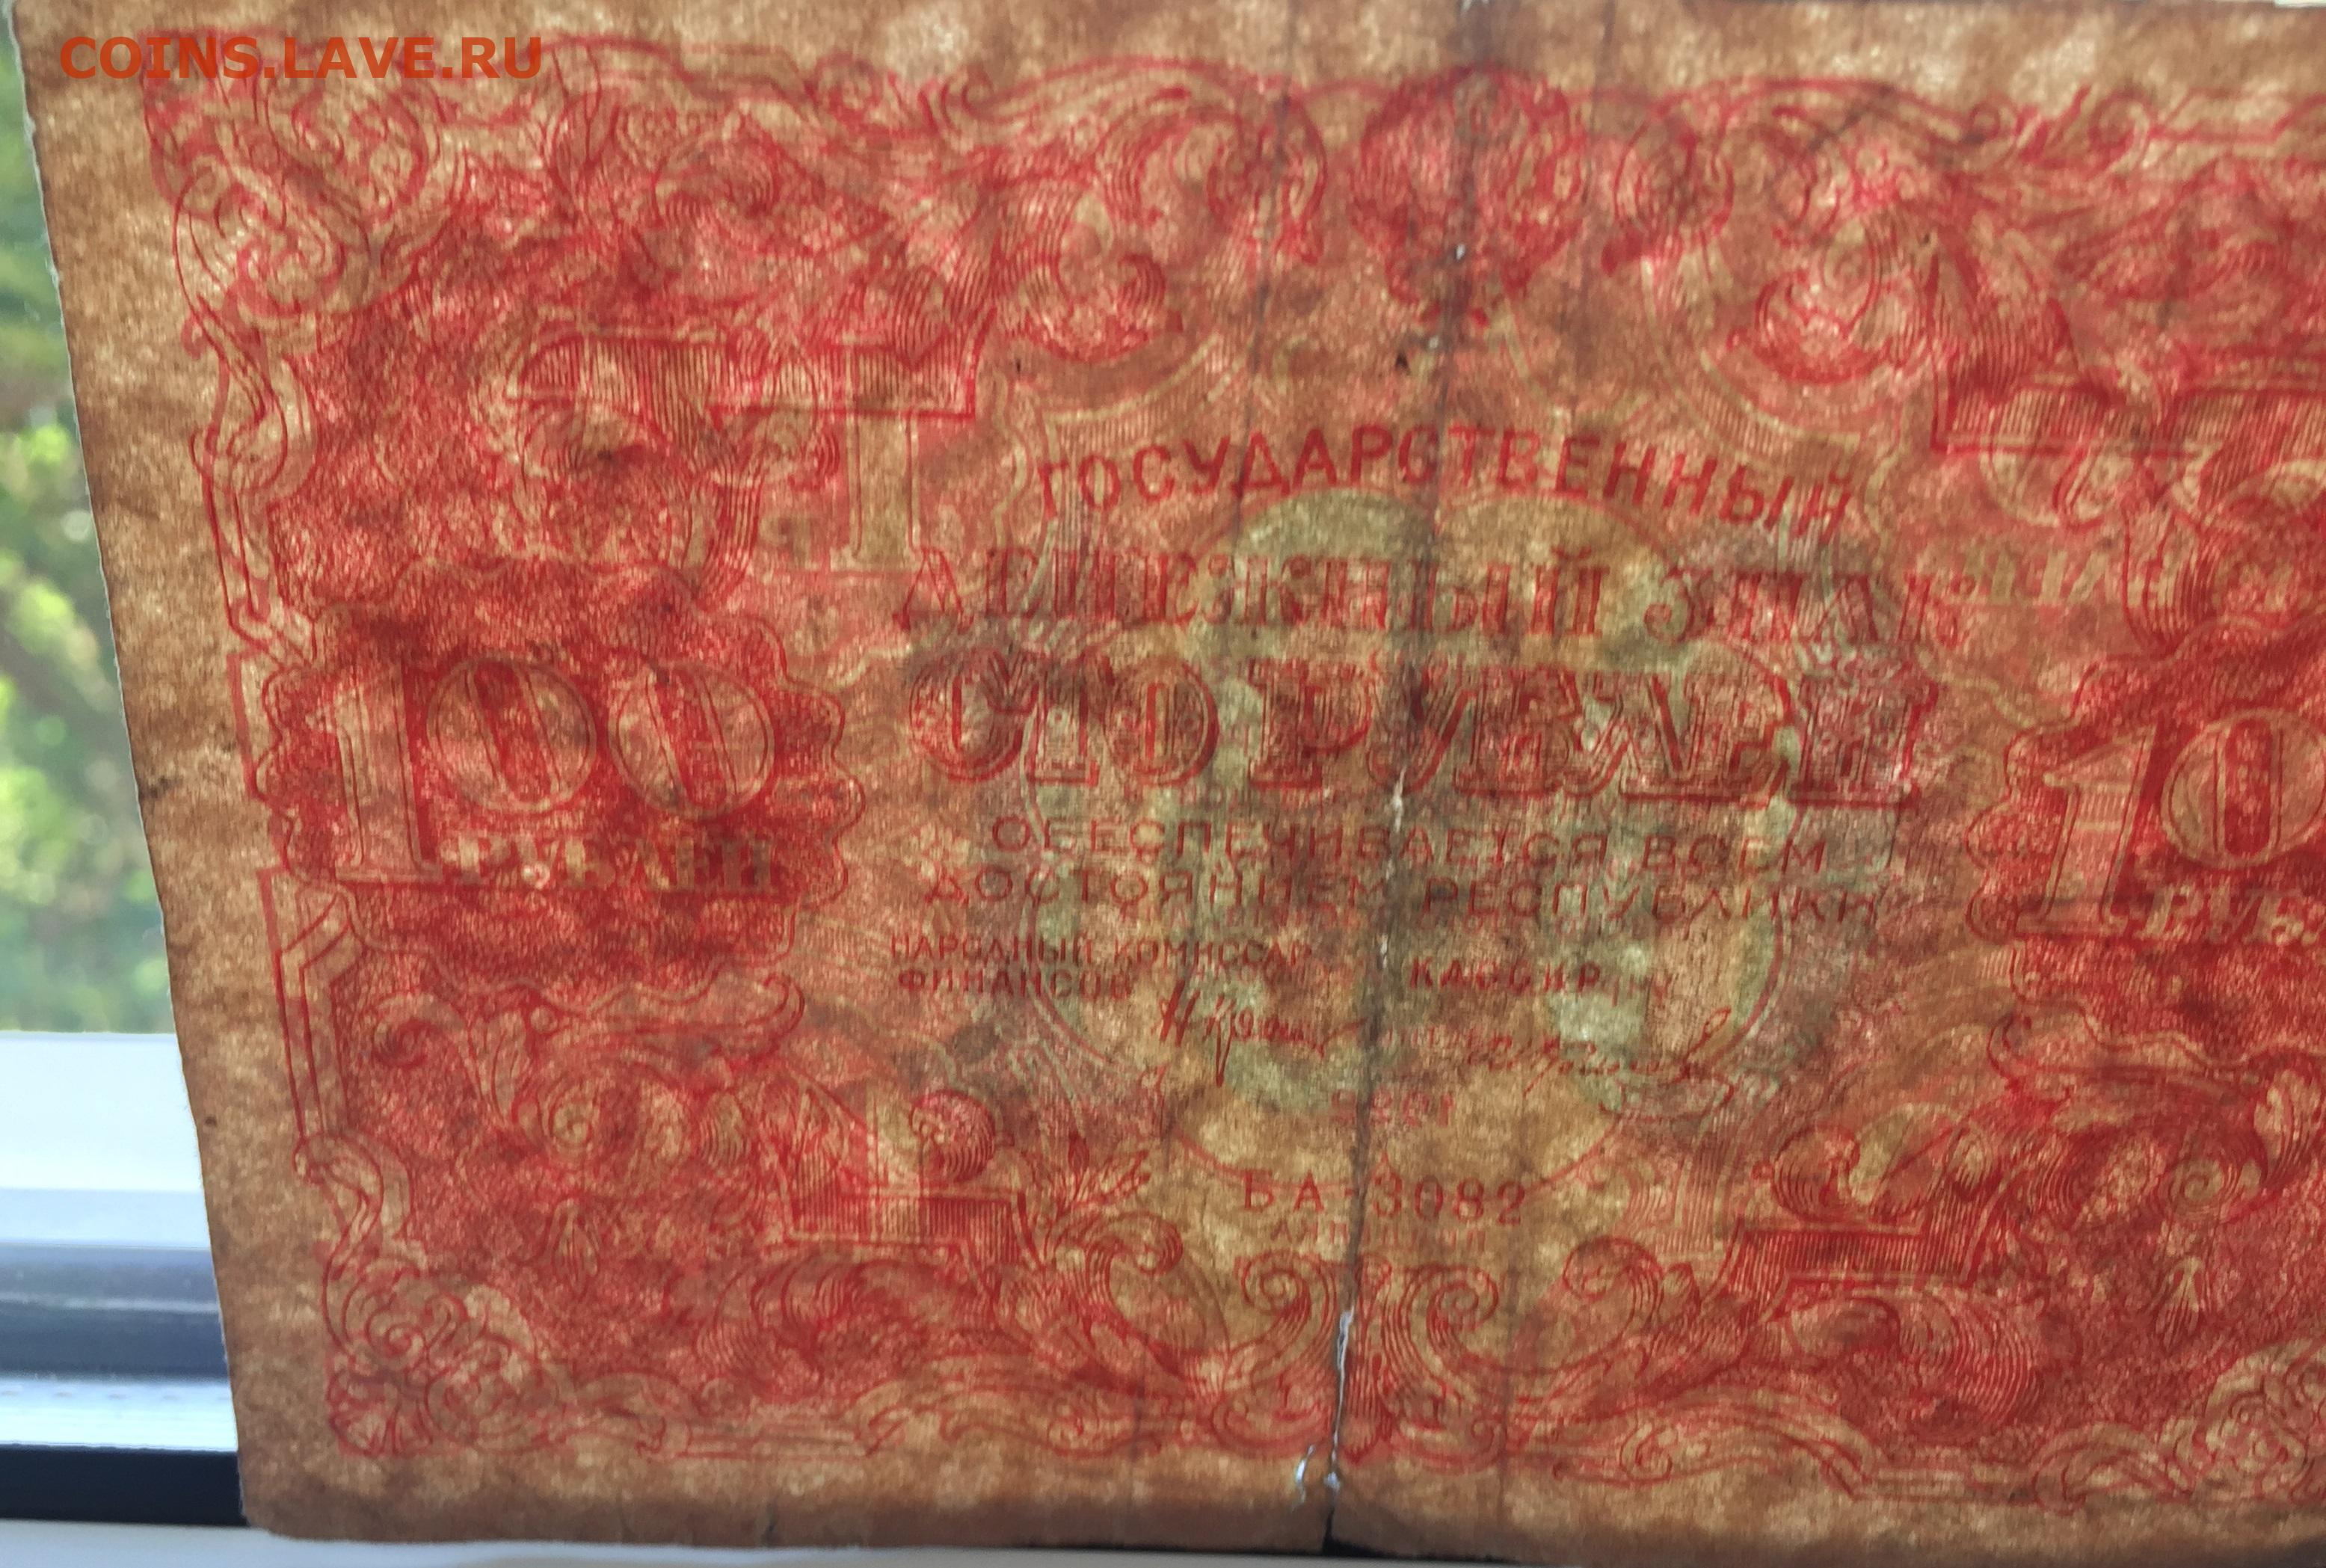 COINS.LAVE.RU
ГОСУДАРСТВЕННЫЙ
ДЕНЕЖНЫЙ ЗНАК
СТО РУБЛЕЙ
100
РУБЛЕЙ
10
ОБЕСПЕЧИВАЕТСЯ ВСЕМ
ДОСТОЯНИЕМ РЕСПУБЛИКИ
НАРОДНЫЙ КОМИССАР
ФИНАНСОВ
КАССИР
БА-3082